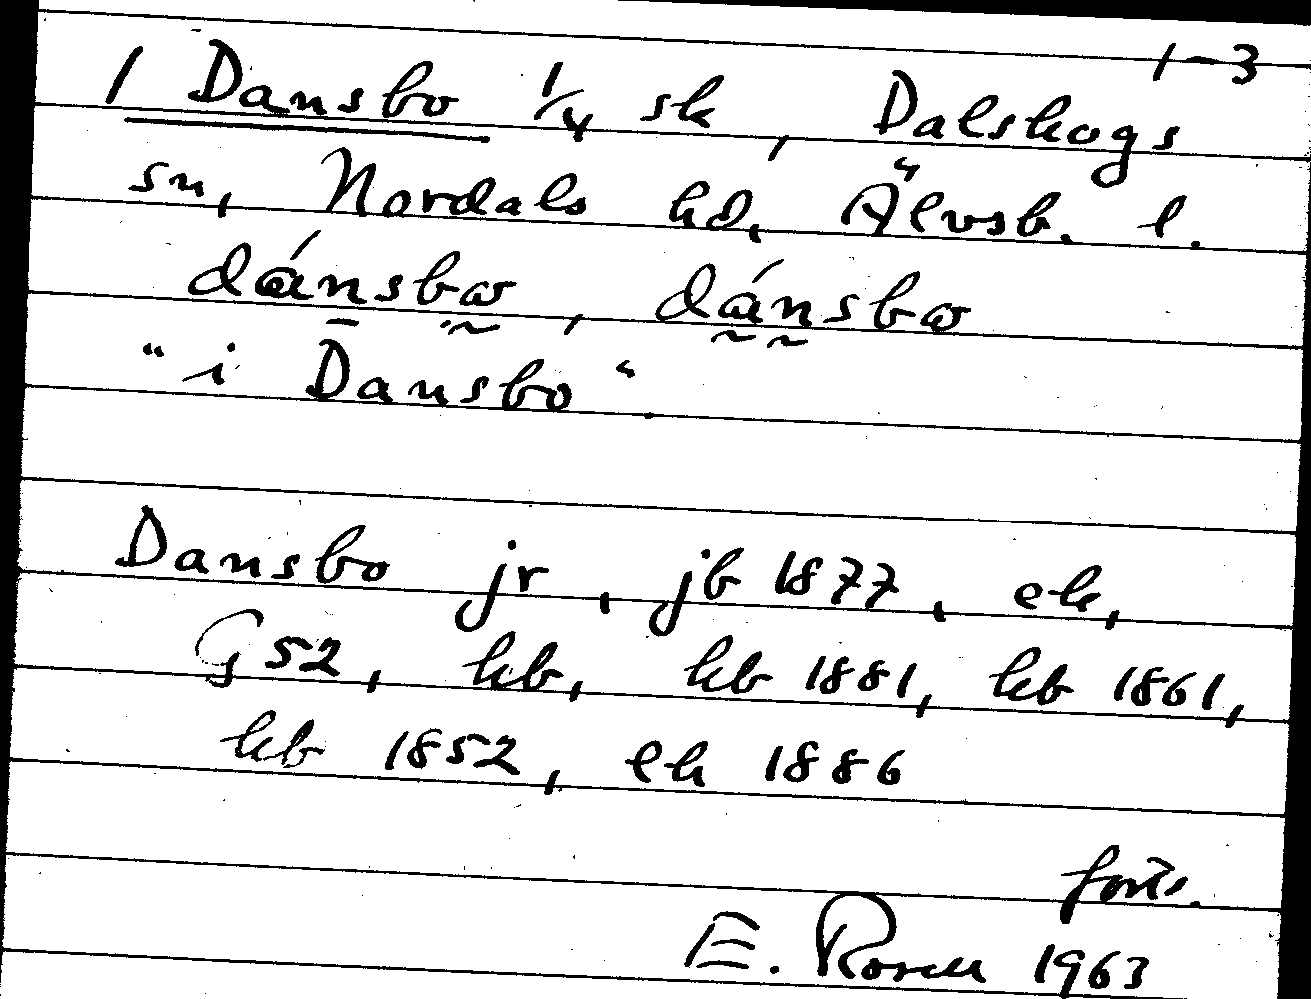 1-3
1 Dansbo 1/4 sk, Dalskogs
sn, Nordals hd, Älvsb. l.
dánsbω, dánsbω
"i Dansbo".
Dansbo jr, jb 1877, ek,
G 52, kb, kb 1881, kb 1861,
kb 1852, ek 1886
forts.
E. Rosell 1963